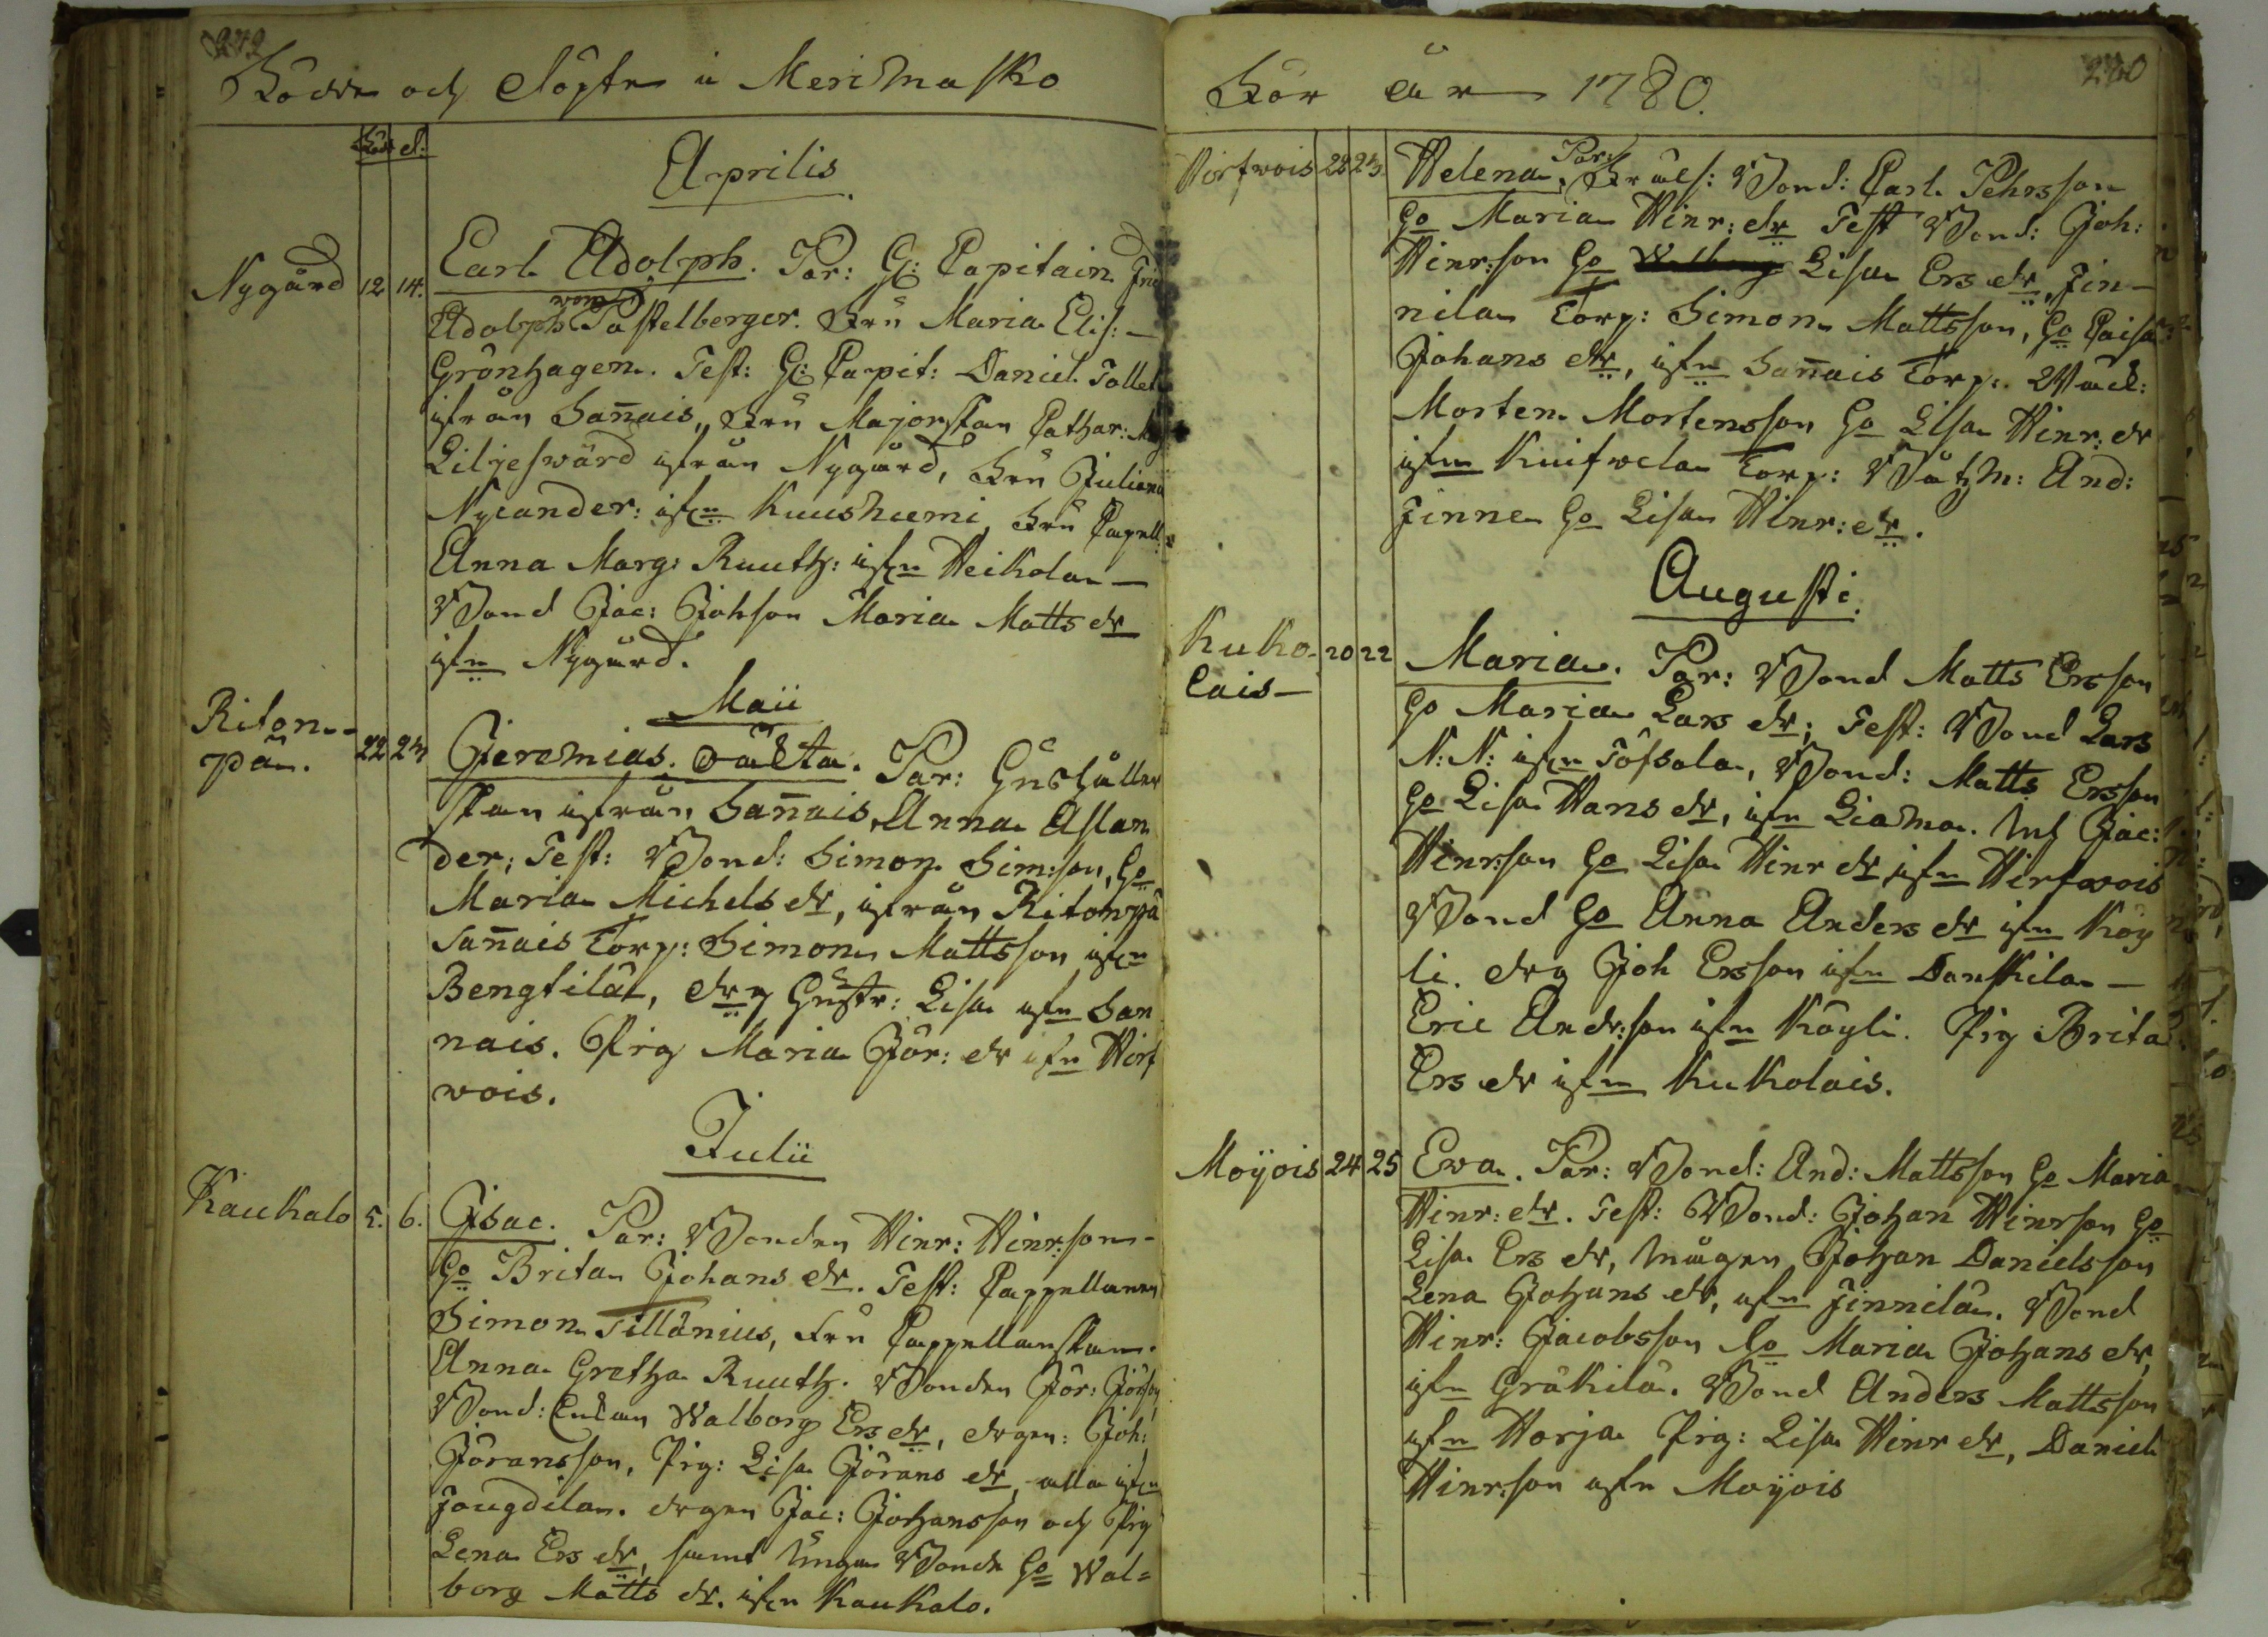 242
Födde och döpte i Merimasko
Född d:
Aprilis
Nygård 12 14. Carl Adolph. Par: H: Capitain Fried
Adolph von Pistelberger. Fru Maria Elis:
Grönhagen. Test: H: Capit: Daniel Tollet
ifrån Sannais, Fru Majorskan Cathar: Mag
Liljeswärd ifrån Nygård, Fru Juliana
Nycander: ifrn Kuusniemi, Fru Capell:
Anna Marg: Ruuth: ifrn Heikola
Bond Jac: Johson Maria Matts dr
ifrn Nygård.
Maii
Riton-
pä. 22 23 Jeremias. oäkta. Par: Hushåller
skan ifrån Sannais, Anna Aslan
der; Test: Bond: Simon Sim:son, Ho
Maria Michels dr, ifrån Ritonpä
Sannais Torp: Simon Mattsson ifrn
Bengtilä, drg Gustr: Lisa ifrn San
nais. Pig Maria Jör: dr ifrn Hirf
wois.
Julii
Kaukalo 5. 6. Isac. Par: Bonden Hinr: Hinr:son
Ho Brita Johans dr. Test: Cappellanen
Simon Tillänius, Fru Cappellanskan
Anna Gretha Ruuth. Bonden Jör: Jörson
Bond: Enkan Walborg Ers dr, drgen: Joh:
Göransson, Pig: Lisa Görans dr, alla ifrn
Jougdila. drgen Jac: Johansson och Pig
Lena Ers dr, samt Unga Bonde Ho Wal=
borg Matts dr. ifrn Kaukalo.
240
För år 1780.
Hirfwois 22 23 Helena. Par: Bond: Carl Pehrsson
Ho Maria Hinr: dr Test Bond: Joh:
Hinr:son Ho Lisa Ers dr, Fin-
nila Torp: Simon Mattsson, Ho Caisa
Johans dr, ifrn Sannais Torp.
Morten Mortensson Ho Lisa Hinr: dr
ifrn Knifwela Torp: Båtzm: And:
Finne Ho Lisa Hinr: dr.
Augusti
Kuko-
lais 20 22 Maria. Par: Bond Matts Ersson
Ho Maria Lars dr; Test: Bond Lars
N: N: ifrn Tofsala, Bond: Matts Ersson
Ho Lisa Hans dr, ifrn Liamo. Jac:
Hinr:son Ho Lisa Hinr dr, ifrn Hirfwois
Bond Ho Anna Anders dr ifrn Köy
li. drg Joh Ersson ifrn Danskila
Eric Andr:son ifrn Köyli. Pig Brita
Ers dr ifrn Kukolais.
Moijois 24 25 Ewa. Par: Bond: And: Mattsson Ho Maria
Hinr: dr. Test: Bond: Johan Hinrson Ho
Lisa Ers dr, mågen Johan Danielsson
Lena Johans dr, ifrn Finnilä. Bond
Hinr: Jacobsson Ho Maria Johans dr,
ifrn Gräkilä. Bond Anders Mattsson
ifrn Horja Pig: Lisa Hinr dr, Daniel
Hinr:son ifrn Moijois